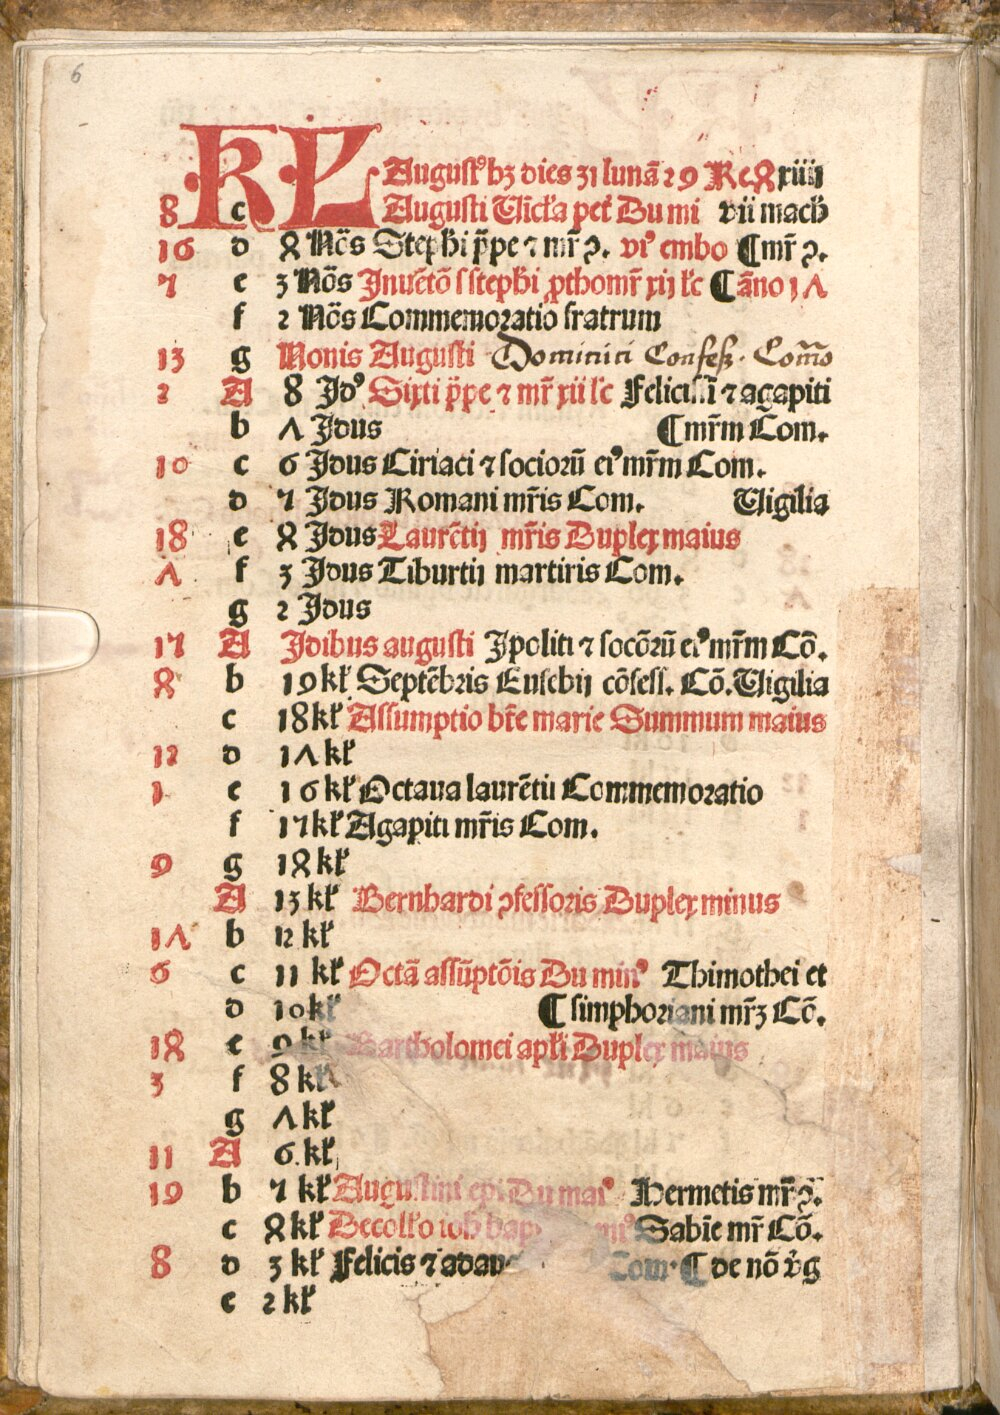 6
KL Augustꝰ hꝫ dies 31 lunā 29 Reꝝ xiiij
8 c Augusti Uīcl'a pet' Du mi vii mach
16 d 4 Nōs Steph'i p̄pe ⁊ mr̄ ꝯ. viꝰ embo ¶ mr̄ ꝯ.
5 e 3 Nōs Inuētō s steph'i ꝓthomr̄ xij lc̄ ¶ āno 17
f 2 Nōs Commemoratio fratrum
13 g Nonis Augusti Dominici Confess. Com̄o
2 A 8 Idꝰ Sixti p̄pe ⁊ mr̄ xii lc̄ Felicissi ⁊ agapiti
b 7 Idus ¶ mr̄m Com.
10 c 6 Idus Ciriaci ⁊ sociorū eiꝰ mr̄m Com.
d 5 Idus Romani mr̄is Com. Uigilia
18 e 4 Idus Laurētij mr̄is Duplex maius
7 f 3 Idus Tiburtij martiris Com.
g 2 Idus
15 A Idibus augusti Ipoliti ⁊ socōrū eiꝰ mr̄m Cō.
4 b 19 kł Septēbris Eusebij cōfess. Cō. Uigilia
c 18 kł Assumptio bt̄e marie Summum maius
12 d 17 kł
1 e 16 kł Octaua laurētii Commemoratio
f 15 kł Agapiti mr̄is Com.
9 g 14 kł
A 13 kł Bernhardi ꝯfessoris Duplex minus
17 b 12 kł
6 c 11 kł Octā assūptōis Du minꝰ Thimothei et
d 10 kł ¶ simphoriani mr̄ꝫ Cō.
14 e 9 kł Bartholomei apl'i Duplex maius
3 f 8 kł
g 7 kł
11 A 6 kł
19 b 5 kł Augustini ep̄i Du maiꝰ Hermetis mr̄ ꝯ.
c 4 kł Decoll'o ioh bap Sabīe mr̄ Cō.
8 d 3 kł Felicis ⁊ adauc Com. ¶ de nō v̄g
e 2 kł